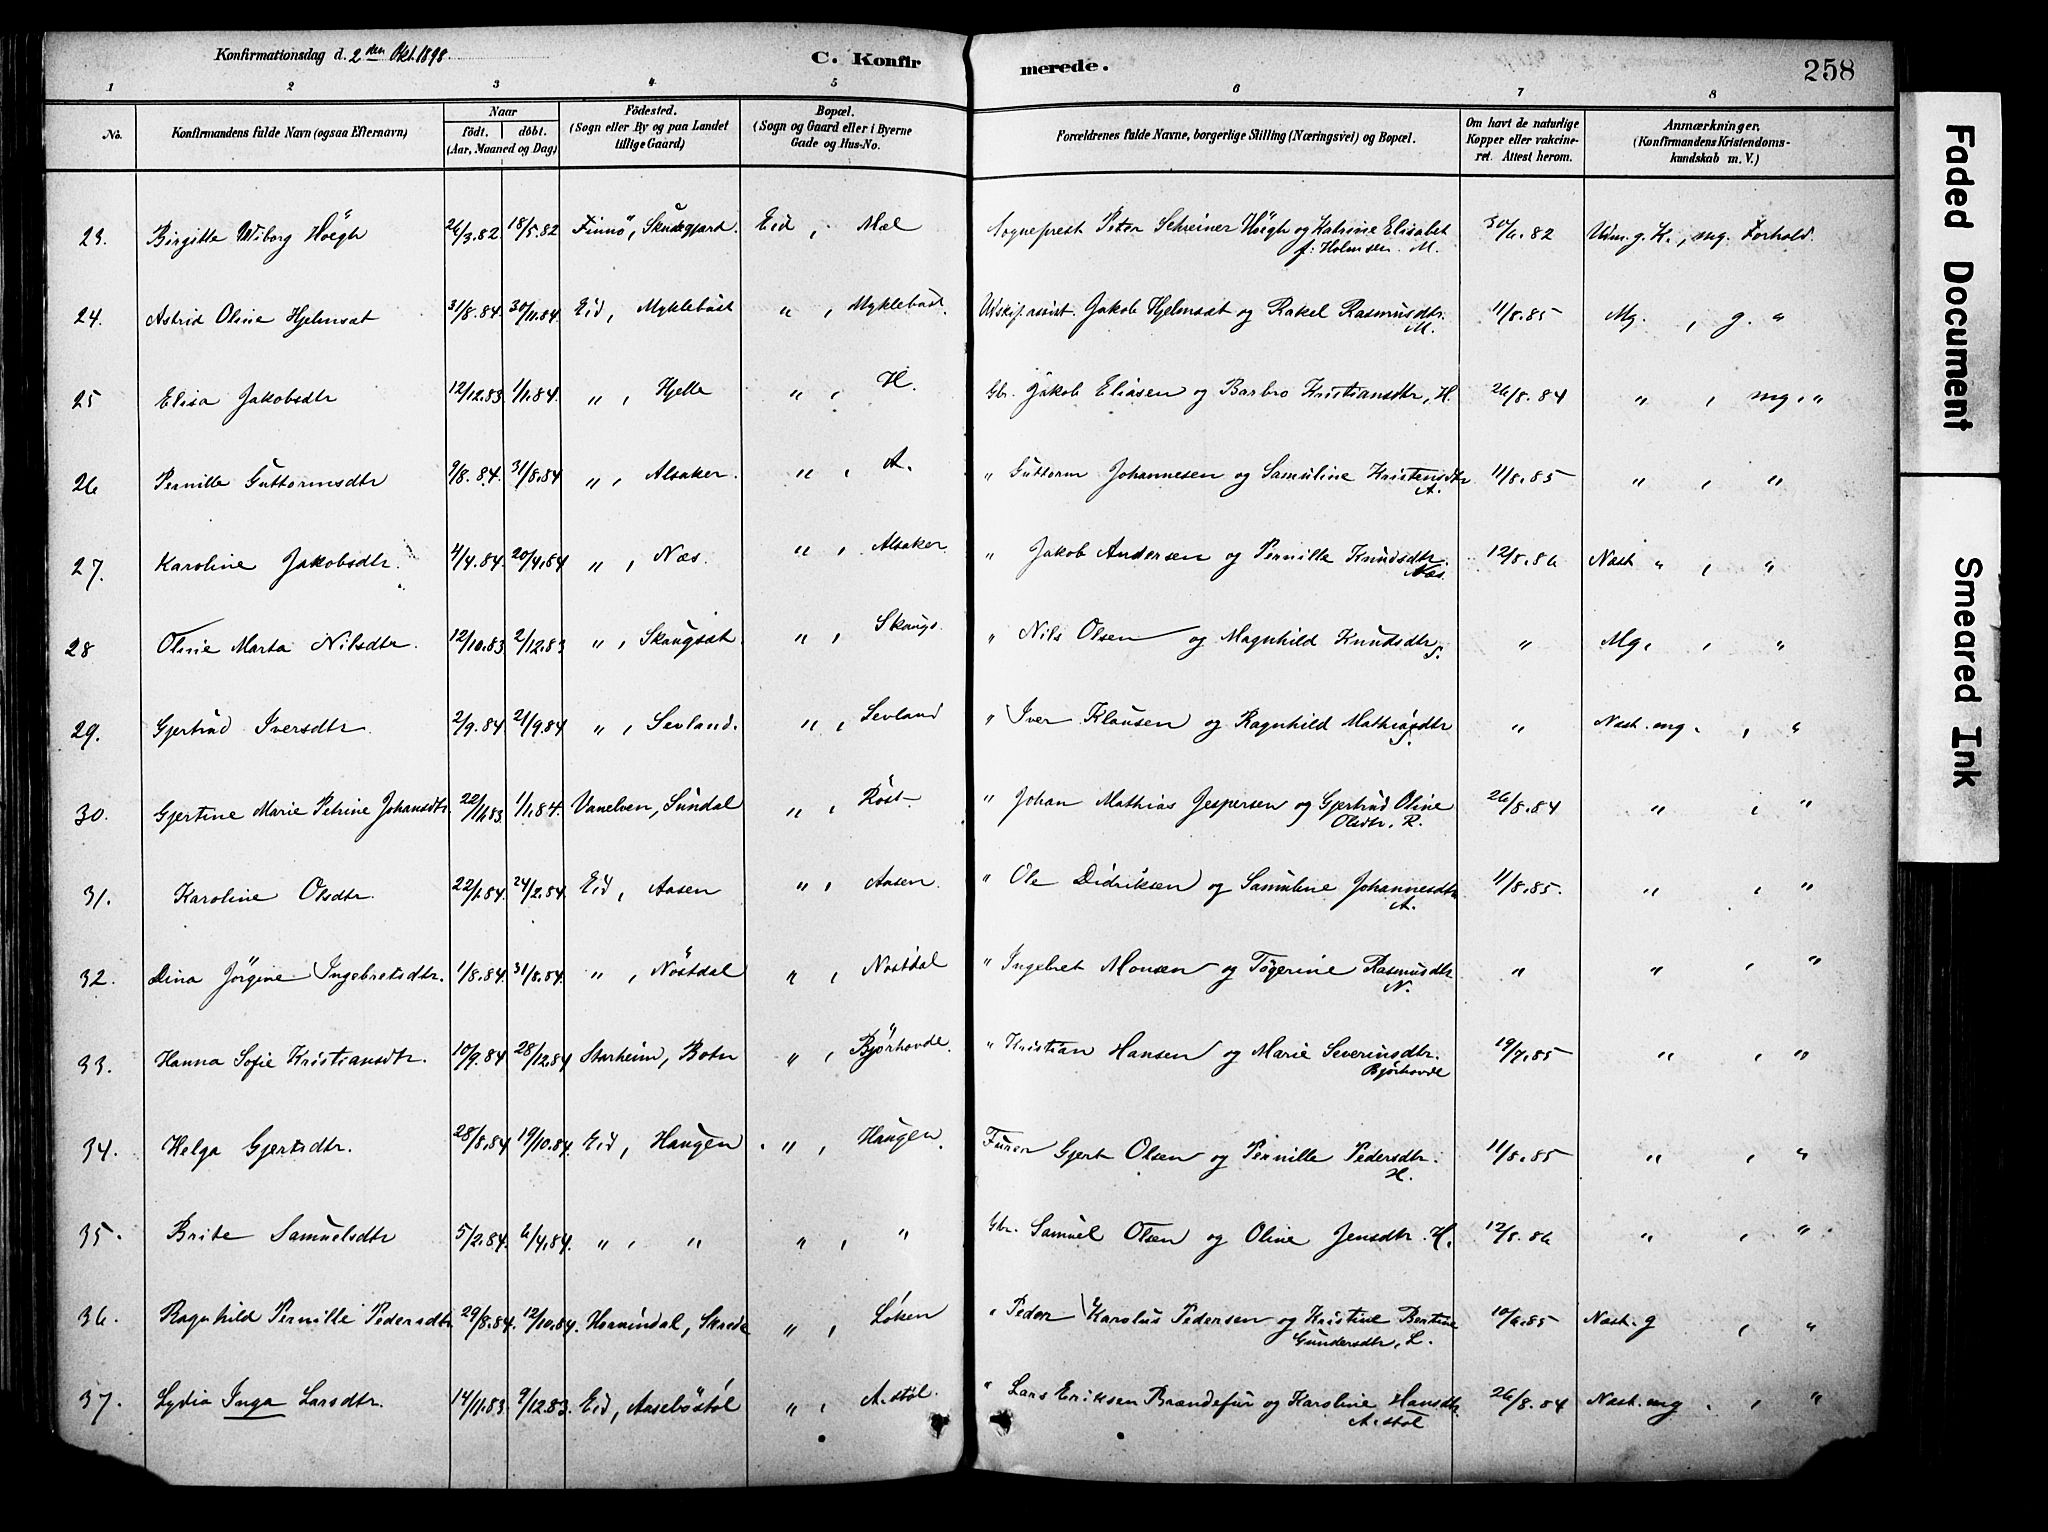 Konfirmationsdag d. 2den Okt. 1898.
C. Konfirmerede.
258
1 2 3 4 5 6 7 8
No. Konfirmandens fulde Navn (ogsaa Efternavn) Naar födt. döbt. (Aar, Maaned og Dag) Födested. (Sogn eller By og paa Landet tillige Gaard) Bopæl. (Sogn og Gaard eller i Byerne Gade og Hus-No. Forældrenes fulde Navne, borgerlige Stilling (Næringsvei) og Bopæl. Om havt de naturlige Kopper eller vakcineret. Attest herom. Anmærkninger. (Konfirmandens Kristendomskundskab m. V.)
23. Birgitte Wiborg Höegh 26/3.82. 18/5.82 Finnö, Eid, Mæl Sogneprest Peter Schreiner Höegh og Katrine Elisabet f: Holmsen. M. 30/6.82 Udm. g. K., mg. Forhold.
24. Astrid Oline Hjelmsæt 31/8.84. 30/11.84. Eid, Myklebust " , Myklebust. Udskif. assist. Jakob Hjelmsæt og Rakel Rasmusdtr. M. 11/8.85 Mg. , g. "
25 Elisa Jakobsdtr 12/12.83 1/1.84. " , Hjelle " , H. Gbr. Jakob Eliasen og Barbro Kristiansdtr, H. 26/8.84 " , mg. "
26 Pernille Guttormsdtr 9/8.84. 31/8.84 " , Alsaker. " , A. " Guttorm Johannesen og Samuline Kristensdtr A. 11/8.85 " , "
27. Karoline Jakobsdtr. 4/4.84. 20/4.84 " , Næs. " , Alsaker " Jakob Andersen og Pernille Knudsdtr. Næs. 12/8.86 Næst " , "
28 Oline Marta Nilsdtr. 12/10.83 2/12.83 " , Skaugsæt. " , Skaugs. " Nils Olsen og Magnhild Knudsdtr S. " Mg. , "
29. Gjertrud Iversdtr. 2/9.84 21/9.84 " , Sevland. " , Sevland " Iver Klausen og Ragnhild Mathiasdtr S. " Næst. mg. , "
30. Gjertine Marie Petrine Johansdtr. 22/11.83. 1/1.84. Vanelven, Sundal " , Röst " Johan Mathias Jespersen og Gjertrud Oline Olsdtr, R. 26/8.84 " , "
31. Karoline Olsdtr. 22/1.84. 24/2.84. Eid, Aasen " , Aasen. " Ole Didriksen og Samuline Johannesdtr A. 11/8.85. " , "
32. Dina Jörgine Ingebretsdtr. 1/8.84. 31/8.84. " , Nöstdal " , Nöstdal " Ingebret Monsen og Tögerine Rasmusdtr N. " " , "
33. Hanna Sofie Kristiansdtr. 10/9.84 28/12.84 Starheim, Botn " , Björhovde. " Kristian Hansen og Marie Severinsdtr. Björhovde 19/7.85 " , "
34. Helga Gjertsdtr. 28/8.84 19/10.84. Eid, Haugen " , Haugen. Furer Gjert Olsen og Pernille Pedersdtr. H. 11/8.85 " , "
35. Brite Samuelsdtr 5/2.84. 6/4.84. " , " " , " Gbr. Samuel Olsen og Oline Jensdtr. H. 12/8.86 " , "
36. Ragnhild Pernille Pedersdtr 29/8.84. 12/10.84. Hornindal, Skrede " , Löken " Peder Karolus Pedersen og Kristine Bertine Gundersdtr, L. 10/6.85 Næst. g , "
37. Lydia Inga Larsdtr. 14/11.83 9/12.83. Eid, Aaseböstöl " , A.stöl. " Lars Eriksen Brandefur og Karoline Hansdtr. A.stöl 26/8.84 Næst. mg. , "
Faded Document
Smeared Ink